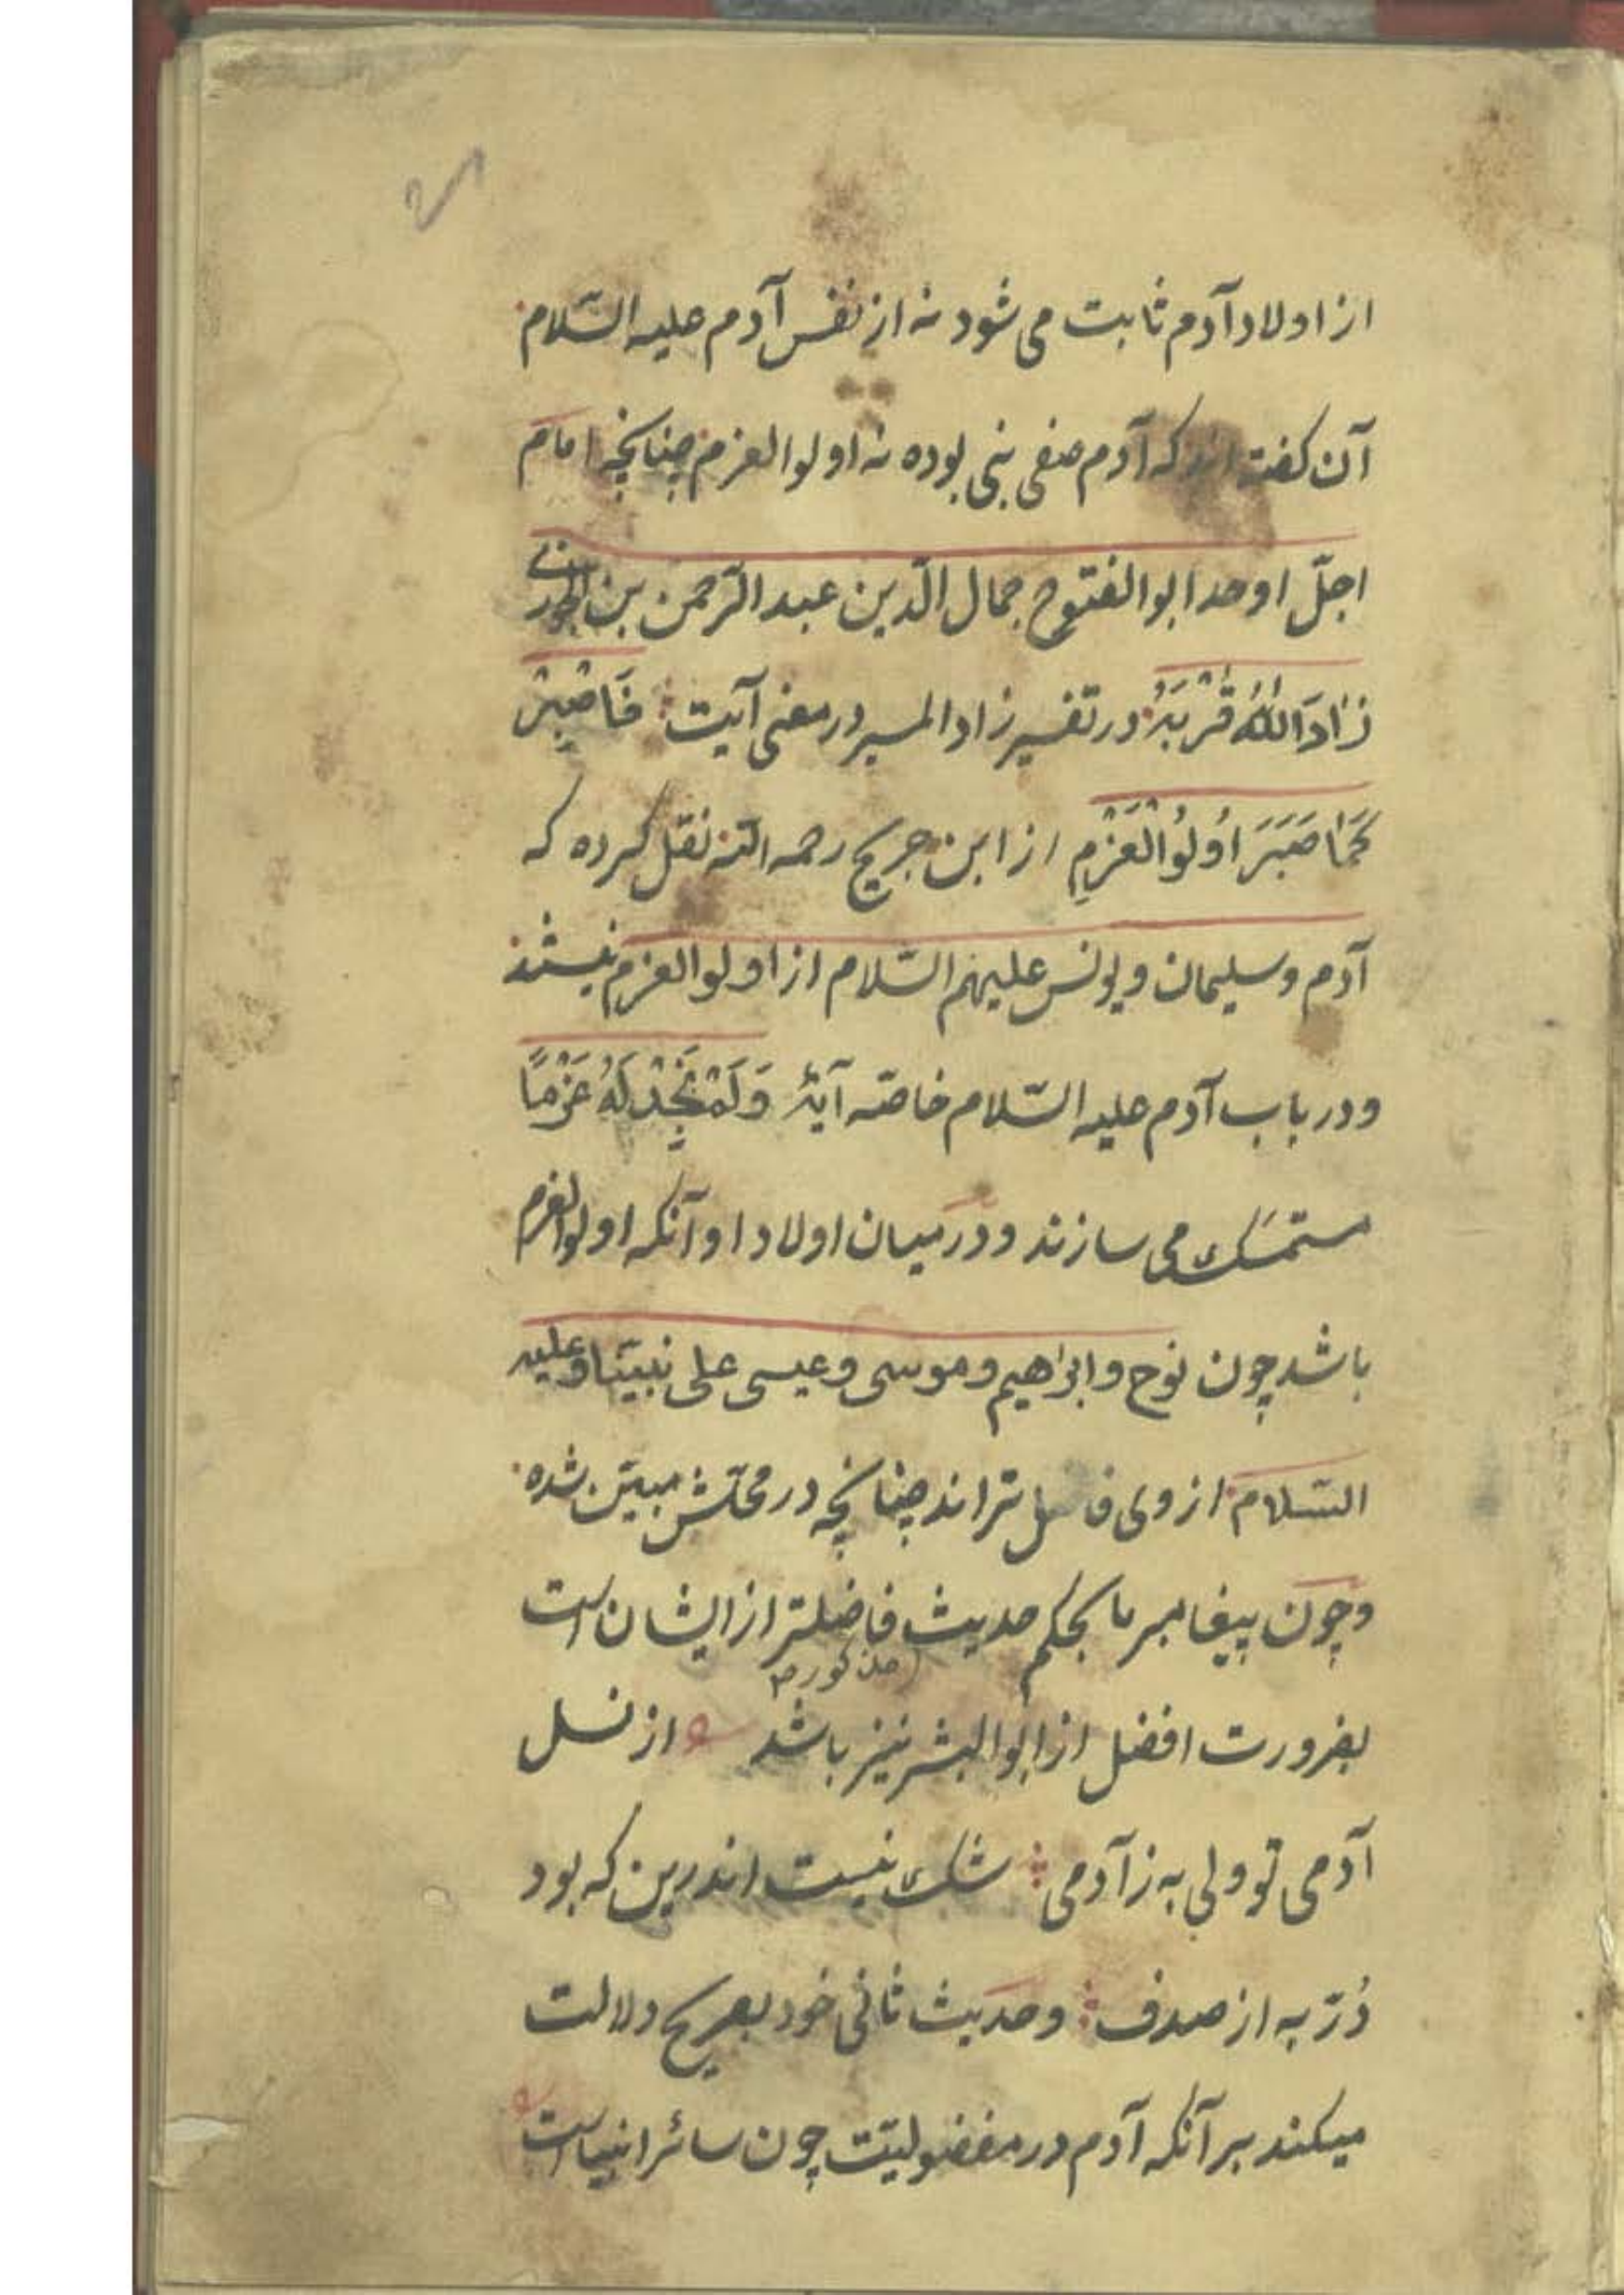 از اولاد آدم ثابت می شود نه از نفس آدم علیه السّلام
آن گفته اند که آدم صفی نبی بوده نه اولوالعزم چنانچه امام
اجلّ اوحد ابوالفتوح جمال الدّین عبد الرّحمن بن الجوزی
زَادَ اللّٰهُ قُرْبَهُ در تفسیر زاد المسیر در معنی آیت فَاصْبِرْ
كَمَا صَبَرَ اُولُوا الْعَزْمِ از ابن جریح رحمه الله نقل کرده که
آدم و سلیمان و یونس علیهم السّلام از اولوا العزم نیستند
و در باب آدم علیه السّلام خاصّه آیهٔ وَلَمْ نَجِدْ لَهُ عَزْمًا
متمسّک می سازند و در میان اولاد او آنکه اولوا العزم
باشد چون نوح و ابراهیم و موسی و عیسی علی نبیّنا و علیه
السّلام از وی فاضل تر اند چنانچه در محلّش مبیّن شده
و چون پیغامبر ما بحکم حدیث فاضلتر از ایشان است
مذکور
بضرورت افضل از ابوالبشر نیز باشد از نسل
آدمی تو ولی به ز آدمی شک نیست اندرین که بود
دُرّ به از صدف و حدیث ثانی خود بصریح دلالت
میکند بر آنکه آدم در مفضولیّت چون سائر انبیا است